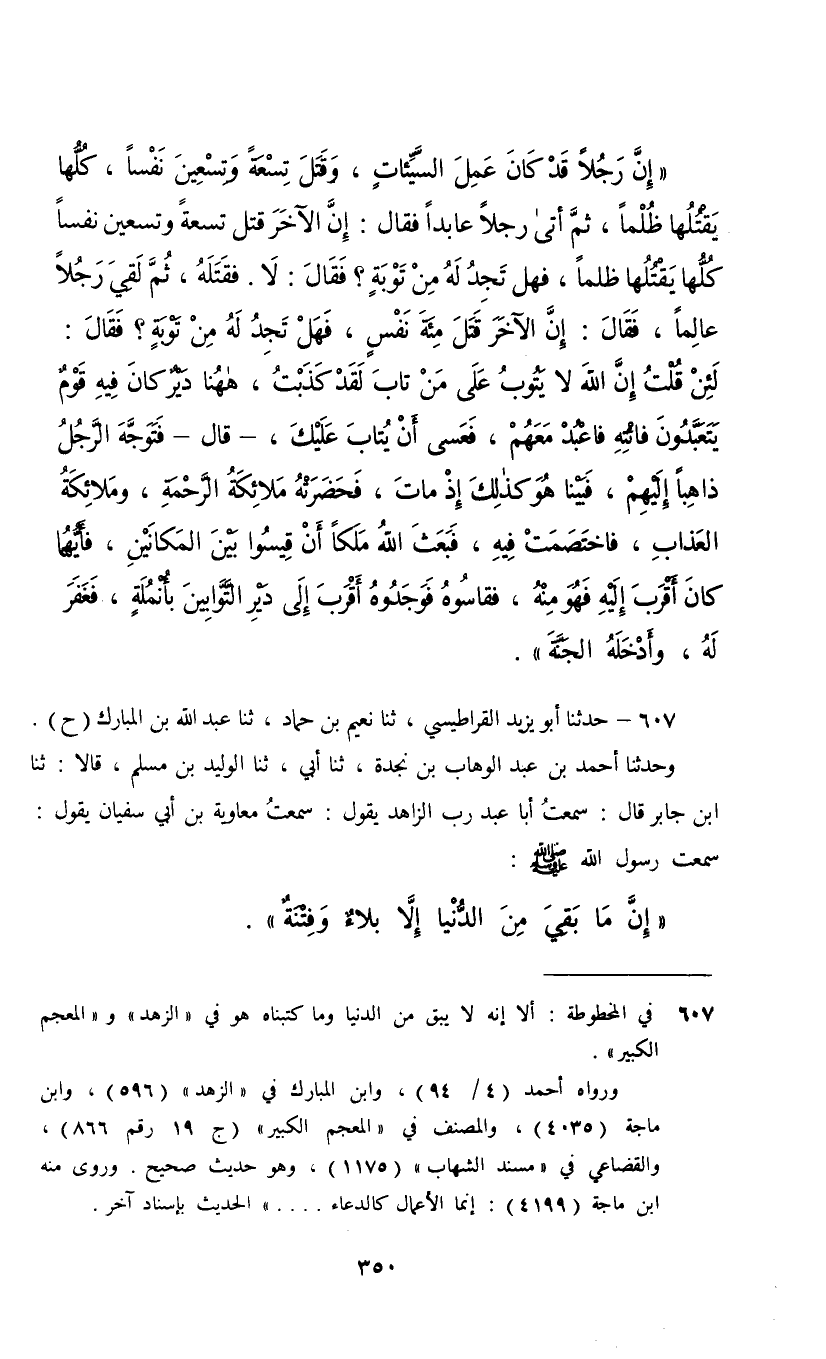 « إِنَّ رَجُلاً قَدْ كَانَ عَمِلَ السَّيِّئاتِ ، وَقَتَلَ تِسْعَةً وَتِسْعِينَ نَفْساً ، كُلُّها
يَقْتُلُها ظُلْماً ، ثمَّ أتىٰ رجلاً عابداً فقال : إنَّ الآخَرَ قتل تسعةً وتسعين نفساً
كُلُّها يَقْتُلُها ظلماً ، فهل تَجِدُ لَهُ مِنْ تَوْبَةٍ ؟ فَقَالَ : لَا . فقَتَلَهُ ، ثُمَّ لَقِيَ رَجُلاً
عالِماً ، فَقَالَ : إِنَّ الآخَرَ قَتَلَ مِئَةَ نَفْسٍ ، فَهَلْ تَجِدُ لَهُ مِنْ تَوْبَةٍ ؟ فَقَالَ :
لَئِنْ قُلْتُ إِنَّ اللهَ لا يَتُوبُ عَلَى مَنْ تابَ لَقَدْ كَذَبْتُ ، هٰهُنا دَيْرٌ كانَ فِيهِ قَوْمٌ
يَتَعَبَّدُونَ فائْتِهِ فاعْبُدْ مَعَهُمْ ، فَعَسى أَنْ يُتابَ عَلَيْكَ ، – قال – فَتَوَجَّهَ الرَّجُلُ
ذاهِباً إِلَيْهِمْ ، فَبَيْنا هُوَ كذٰلِكَ إِذْ ماتَ ، فَحَضَرَتْهُ مَلائِكَةُ الرَّحْمَةِ ، وملائِكَةُ
العَذابِ ، فاختَصَمَتْ فِيهِ ، فَبَعَثَ اللهُ مَلَكاً أَنْ قِيسُوا بَيْنَ المَكانَيْنِ ، فأَيُّها
كانَ أَقْرَبَ إِلَيْهِ فَهُوَ مِنْهُ ، فقاسُوهُ فَوَجَدُوهُ أَقْرَبَ إِلَى دَيْرِ التَّوَّابِينَ بأُنْمُلَةٍ ، فَغَفَرَ
لَهُ ، وأَدْخَلَهُ الجَنَّةَ » .
٦٠٧ – حدثنا أبو يزيد القراطيسي ، ثنا نعيم بن حماد ، ثنا عبد الله بن المبارك ( ح ) .
وحدثنا أحمد بن عبد الوهاب بن نجدة ، ثنا أبي ، ثنا الوليد بن مسلم ، قالا : ثنا
ابن جابر قال : سمعتُ أبا عبد رب الزاهد يقول : سمعتُ معاوية بن أبي سفيان يقول :
سمعت رسول الله ﷺ :
« إِنَّ مَا بَقِيَ مِنَ الدُّنْيا إِلَّا بلاءٌ وَفِتْنَةٌ » .
٦٠٧ في المخطوطة : ألا إنه لا يبق من الدنيا وما كتبناه هو في « الزهد » و « المعجم
الكبير » .
ورواه أحمد ( ٤ / ٩٤ ) ، وابن المبارك في « الزهد » ( ٥٩٦ ) ، وابن
ماجة ( ٤٠٣٥ ) ، والمصنف في « المعجم الكبير » ( ج ١٩ رقم ٨٦٦ ) ،
والقضاعي في « مسند الشهاب » ( ١١٧٥ ) ، وهو حديث صحيح . وروى منه
ابن ماجة ( ٤١٩٩ ) : إنما الأعمال كالدعاء . . . . » الحديث بإسناد آخر .
٣٥٠